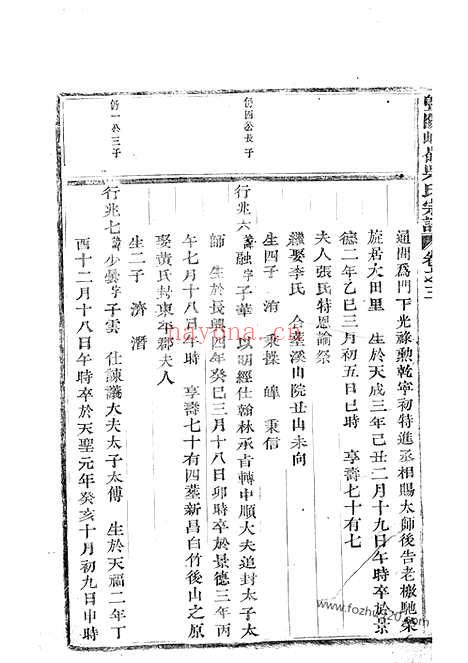 暨陽嵊峴吳氏宗譜 卷之三
通閏爲門下光祿勲乾寧初特進丞相賜太師後告老檄馳榮
旋居大田里 生於天成三年己丑二月十九日午時卒於景
德二年乙巳三月初五日巳時 享壽七十有七
夫人張氏特恩諭祭
繼娶李氏 合塟溪山院丑山未向
生四子 淯 乘 操 皥 秉信
㑹四公長子
行兆六諱融字子華 以明經仕翰林承㫖轉中順大夫追封太子太
師 生於長興四年癸巳三月十八日卯時卒於景德三年丙
午七月十八日午時 享壽七十有四墓新昌白竹後山之原
娶黃氏封東平郡夫人
生二子 濟 潛
㑹一公三子
行兆七諱少曇字子雲 仕諫議大夫太子太傅 生於天福二年丁
酉十二月十八日午時卒於天聖元年癸亥十月初九日申時
nayona.cn
www.fozhu920.com